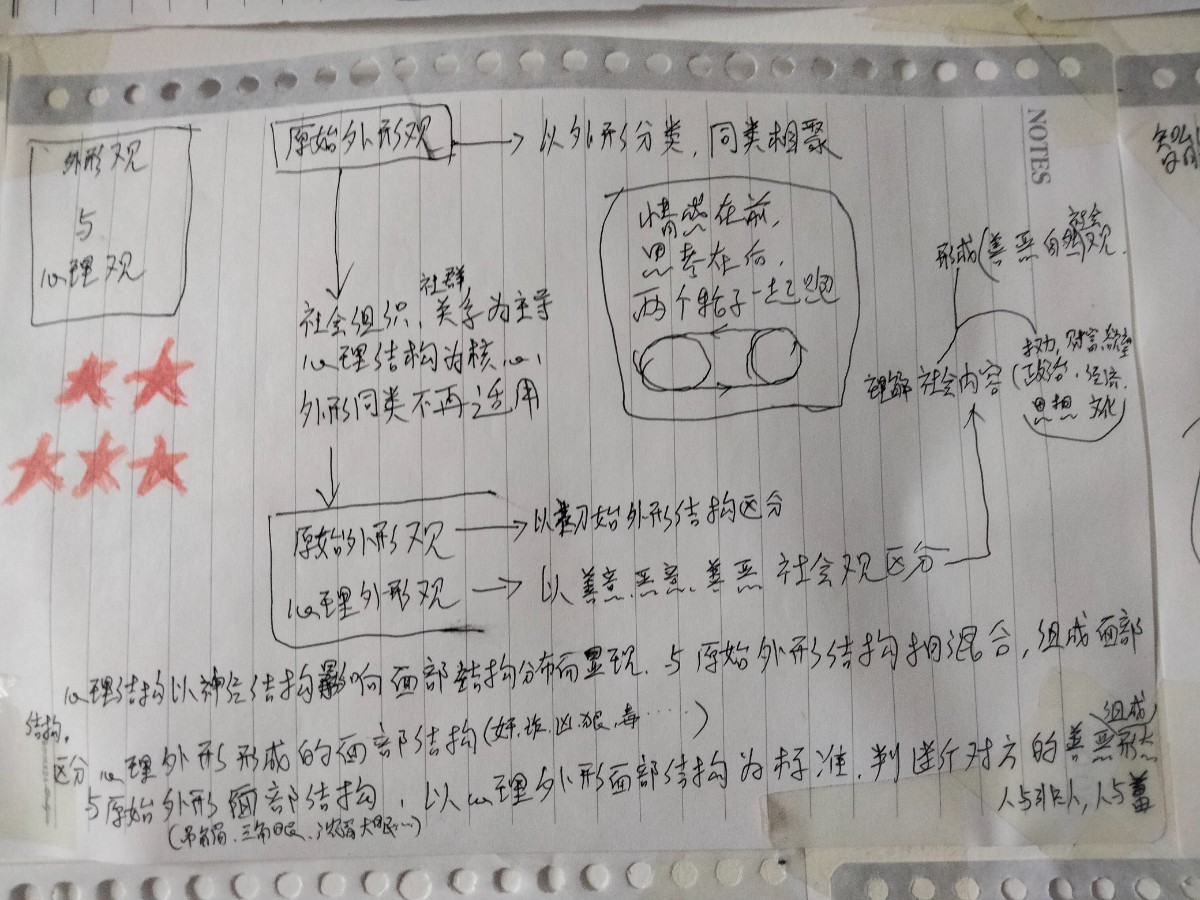 NOTES
外形观
与
心理观
原始外形观
以外形分类，同类相聚
情感在前，
思考在后，
两个轮子一起跑
社会
形成(善恶自然观.
社群
社会组织，关系为主导
心理结构为核心，
外形同类不再适用
权力，财富，
理解社会内容(政治、经济.
思想 文化)
原始外形观
以初始外形结构区分
心理外形观
以善意、恶意、善恶社会观区分
心理结构以神经结构影响面部结构分布而显现.与原始外形结构相混合，组成面部
结构.
区分心理外形形成的面部结构(奸.诈.凶.狠.毒……)
与原始外形面部结构，以心理外形面部结构为标准.判进行对方的善恶形态
组成
(吊角眉、三角眼、浓眉大眼…)
人与非人，人与